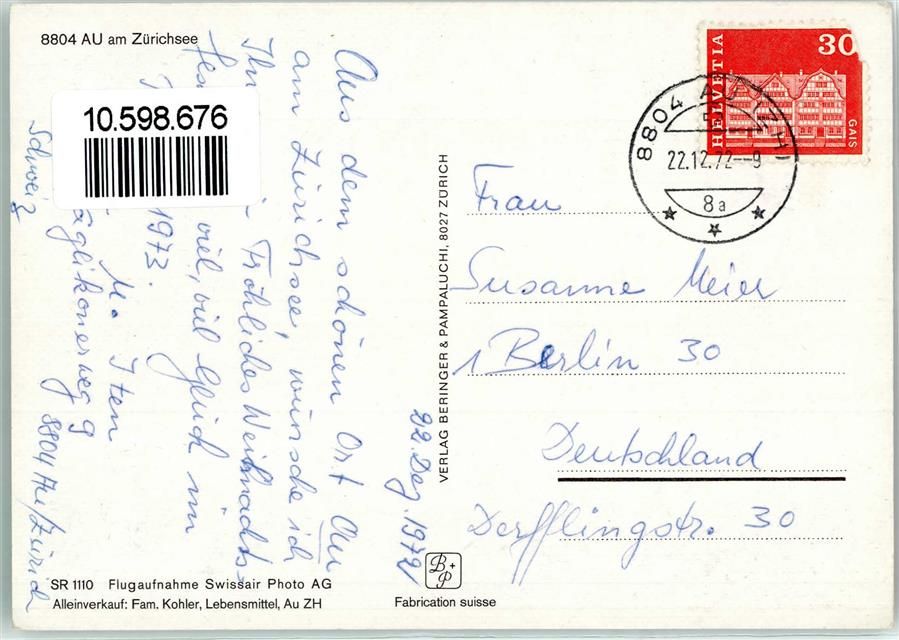 8804 AU am Zürichsee
10.598.676
Aus dem schönen Ort Au
am Zürichsee, wünsche ich
Ihn
Fröhliches Weihnachts-
fes viel, viel Glück im
1973.
M. Iten
8804 Au/Zürich
Schweiz
22. Dez. 1972
VERLAG BERINGER & PAMPALUCHI, 8027 ZÜRICH
HELVETIA
30
GAIS
8804 AU (ZH)
22.12.72--9
8a
Frau
Susanne Meier
1 Berlin 30
Deutschland
Derfflingstr. 30
SR 1110 Flugaufnahme Swissair Photo AG
Alleinverkauf: Fam. Kohler, Lebensmittel, Au ZH
B+P
Fabrication suisse